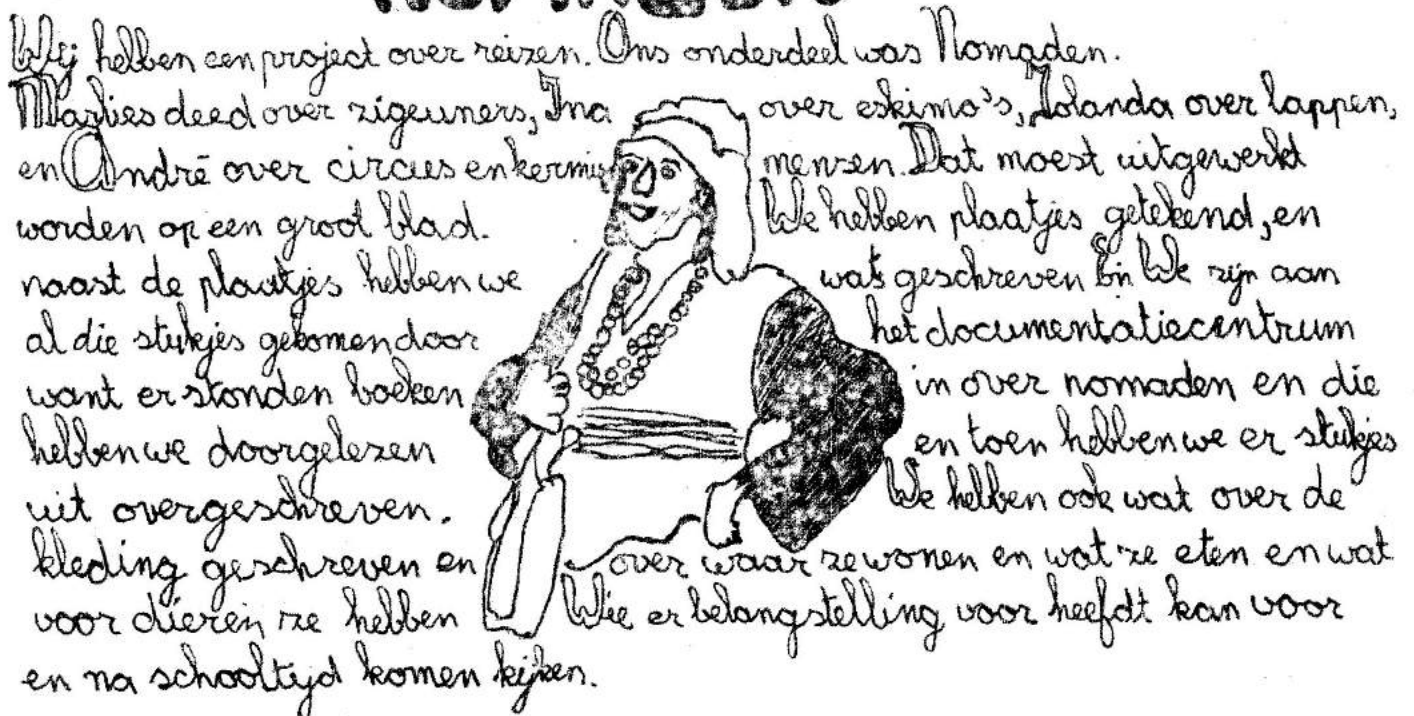 Wij hebben een project over reizen. Ons onderdeel was Nomaden.
Marlies deed over zigeuners, Ina over eskimo's, Jolanda over lappen,
en André over circus en kermis mensen. Dat moest uitgewerkt
worden op een groot blad. We hebben plaatjes getekend, en
naast de plaatjes hebben we wat geschreven En We zijn aan
al die stukjes gekomen door het documentatiecentrum
want er stonden boeken in over nomaden en die
hebben we doorgelezen en toen hebben we er stukjes
uit overgeschreven. We hebben ook wat over de
kleding geschreven en over waar ze wonen en wat ze eten en wat
voor dieren ze hebben Wie er belangstelling voor heefdt kan voor
en na schooltijd komen kijken.